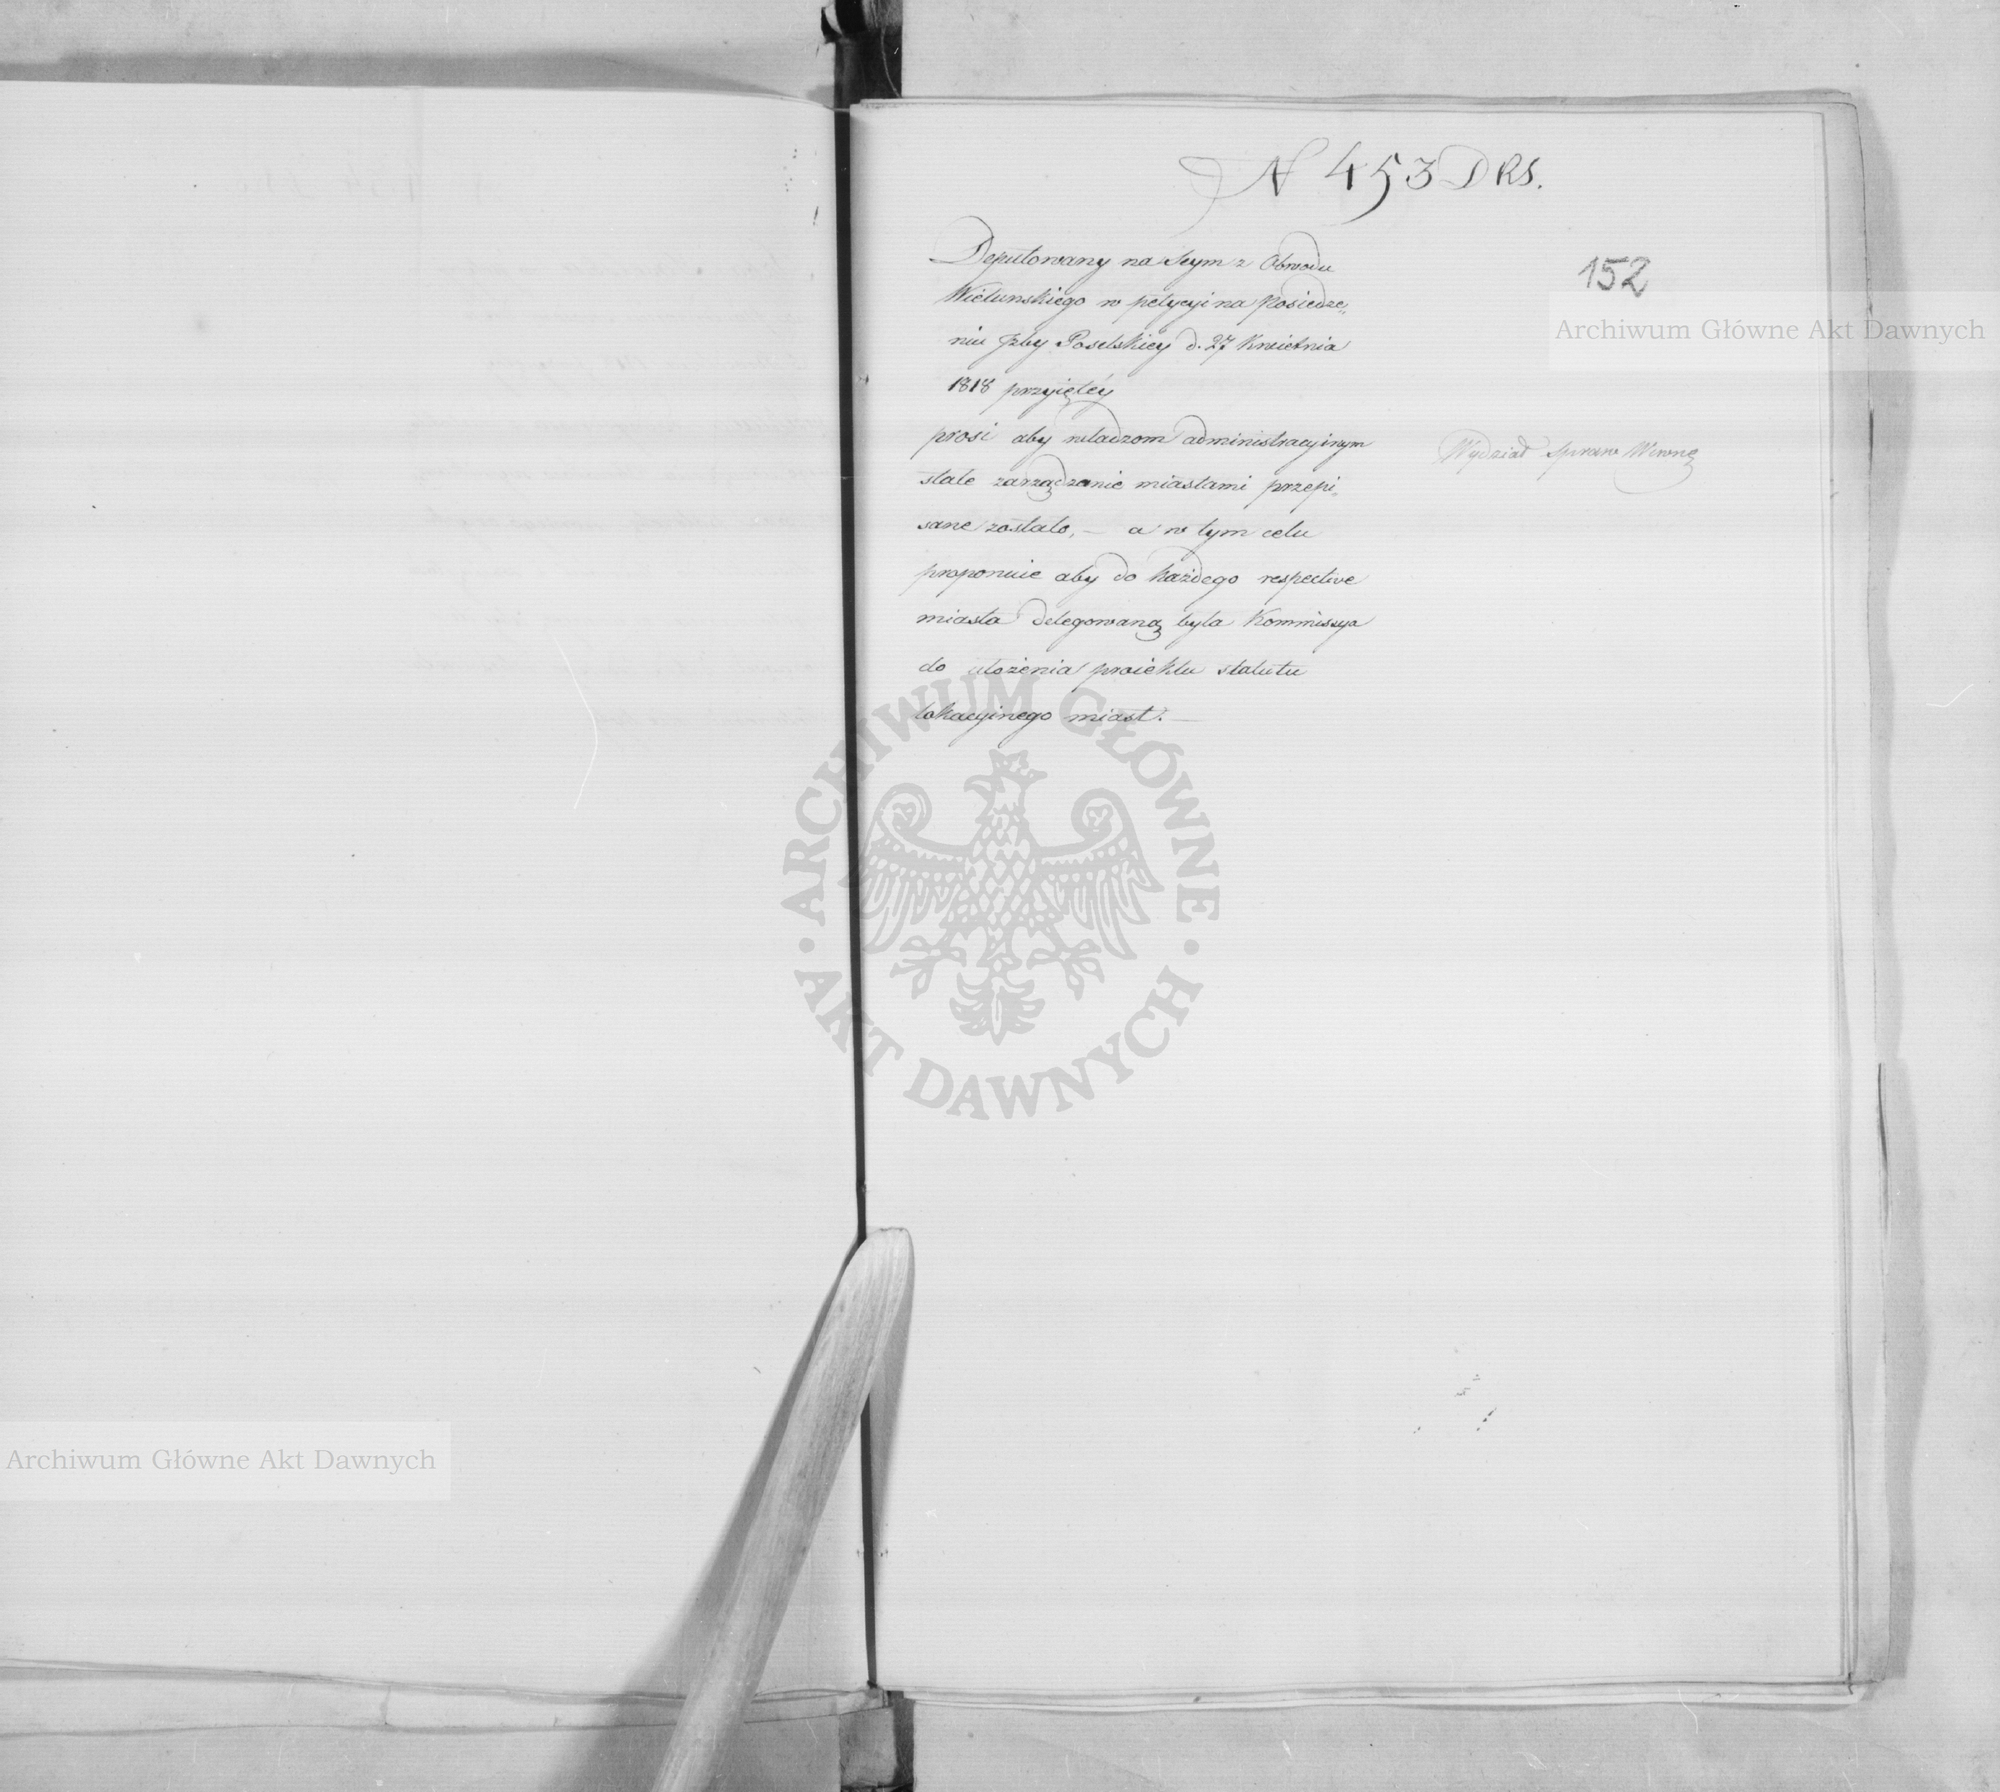 N 453 DRS.
152
Deputowany na Seym z Obwodu
Wielunskiego w petycyi na Posiedze„
niu Jzby Poselskiey d. 27 Kwietnia
1818 przyiętéy
prosi aby władzom administracyinym
stałe zarządzenie miastami przepi„
sane zostało, — a w tym celu
proponuie aby do każdego respective
miasta delegowaną była Kommissya
do ułożenia proiektu statutu
lokacyinego miast. —
Wydział Spraw Wewnę
Archiwum Główne Akt Dawnych
ARCHIWUM GŁÓWNE · AKT DAWNYCH ·
Archiwum Główne Akt Dawnych